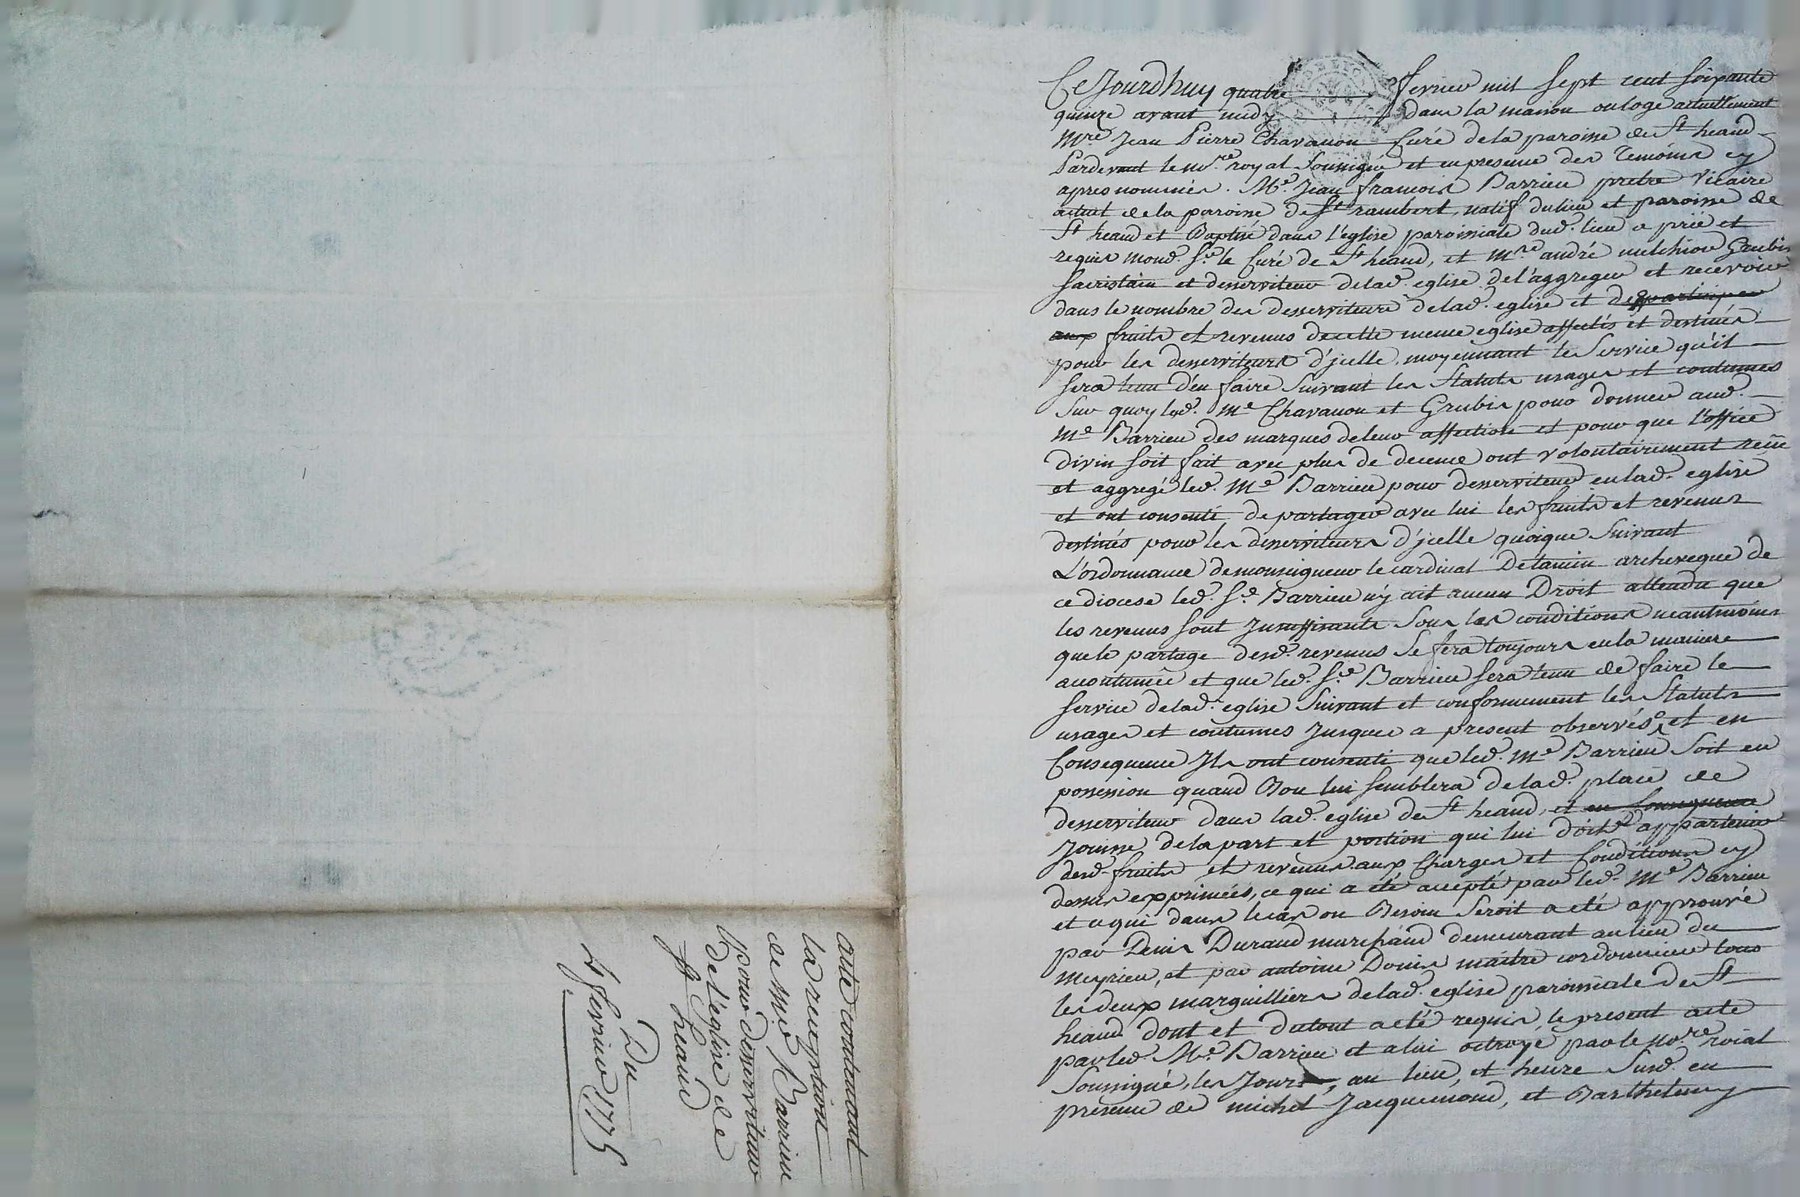 Ce Jourdhuy quatre fevrier mil sept cent soixante
quinze avant midy dans la maison ou loge actuellement
Mre Jean Pierre Chavanon Curé de la paroisse de St heand
Pardevant le nore royal soussigné et en presence des temoins cy
apres nommés. Me Jean francois Barrieu pretre vicaire
actuel de la paroisse de St rambert, natif du lieu et paroisse de
St heand et Baptisé dans l'eglise paroissiale dud. lieu a prié et
requis mond. Sr le Curé de St heand, et Mre andré melchior Grubis
sacristain et desserviteur de lad. eglise de l'aggreger et recevoir
dans le nombre des desserviteurs de lad. eglise et de participer
aux fruits et revenus de cette meme eglise affectés et destinés
pour les desserviteurs d'jcelle, moyennant le Service qu'il
sera tenu d'en faire Suivant les Statuts usages et coutumes
Sur quoy led. Me Chavanon et Grubis pour donner aud.
Me Barrieu des marques de leur affection et pour que l'office
divin soit fait avec plus de decence ont volontairement recu
et aggregé led. Me Barrieu pour desserviteur en lad. eglise
et ont consenti de partager avec lui les fruits et revenus
destinés pour les desserviteurs d'jcelle quoique Suivant
L'ordonnance de monseigneur le cardinal De tancin archeveque de
ce diocese led. Sr Barrieu n'y ait aucun Droit attendu que
les revenus sont Jnsuffisants Sous les conditions neantmoins
que le partage desd. revenus Se fera toujours en la maniere
acoutumée et que led. Sr Barrieu sera tenu de faire le
service de lad. eglise Suivant et conformement les Statuts
usages et coutumes Jusques a present observés, et en
Consequence Jls ont consenti que led. Me Barrieu Soit en
possession quand Bon lui semblera de lad. place de
desserviteur dans lad. eglise de St heand, et en consequence
Jouisse de la part et portion qui lui doit appartenir
desd. fruits et revenus aux Charges et Conditions cy
dessus exprimées, ce qui a eté accepté par led. Me Barrieu
et ce qui dans le cas ou Besoin Seroit a eté approuvé
par Denis Durand marchand demeurant au lieu du
meyrieu, et par antoine Donis maitre cordonnier tous
les deux marguilliers de lad. eglise paroissiale de St
heand dont et du tout a eté requis le present acte
par led. Me Barrieu et a lui octroyé par le nore roial
Soussigné, les Jours, au lieu, et heure Susd. en
presence de michel Jacquemond, et Barthelemy
acte contenant
la reception
de Mre Barrieu
pour desserviteur
de l'eglise de
St heand
Du
4 fevrier 1775